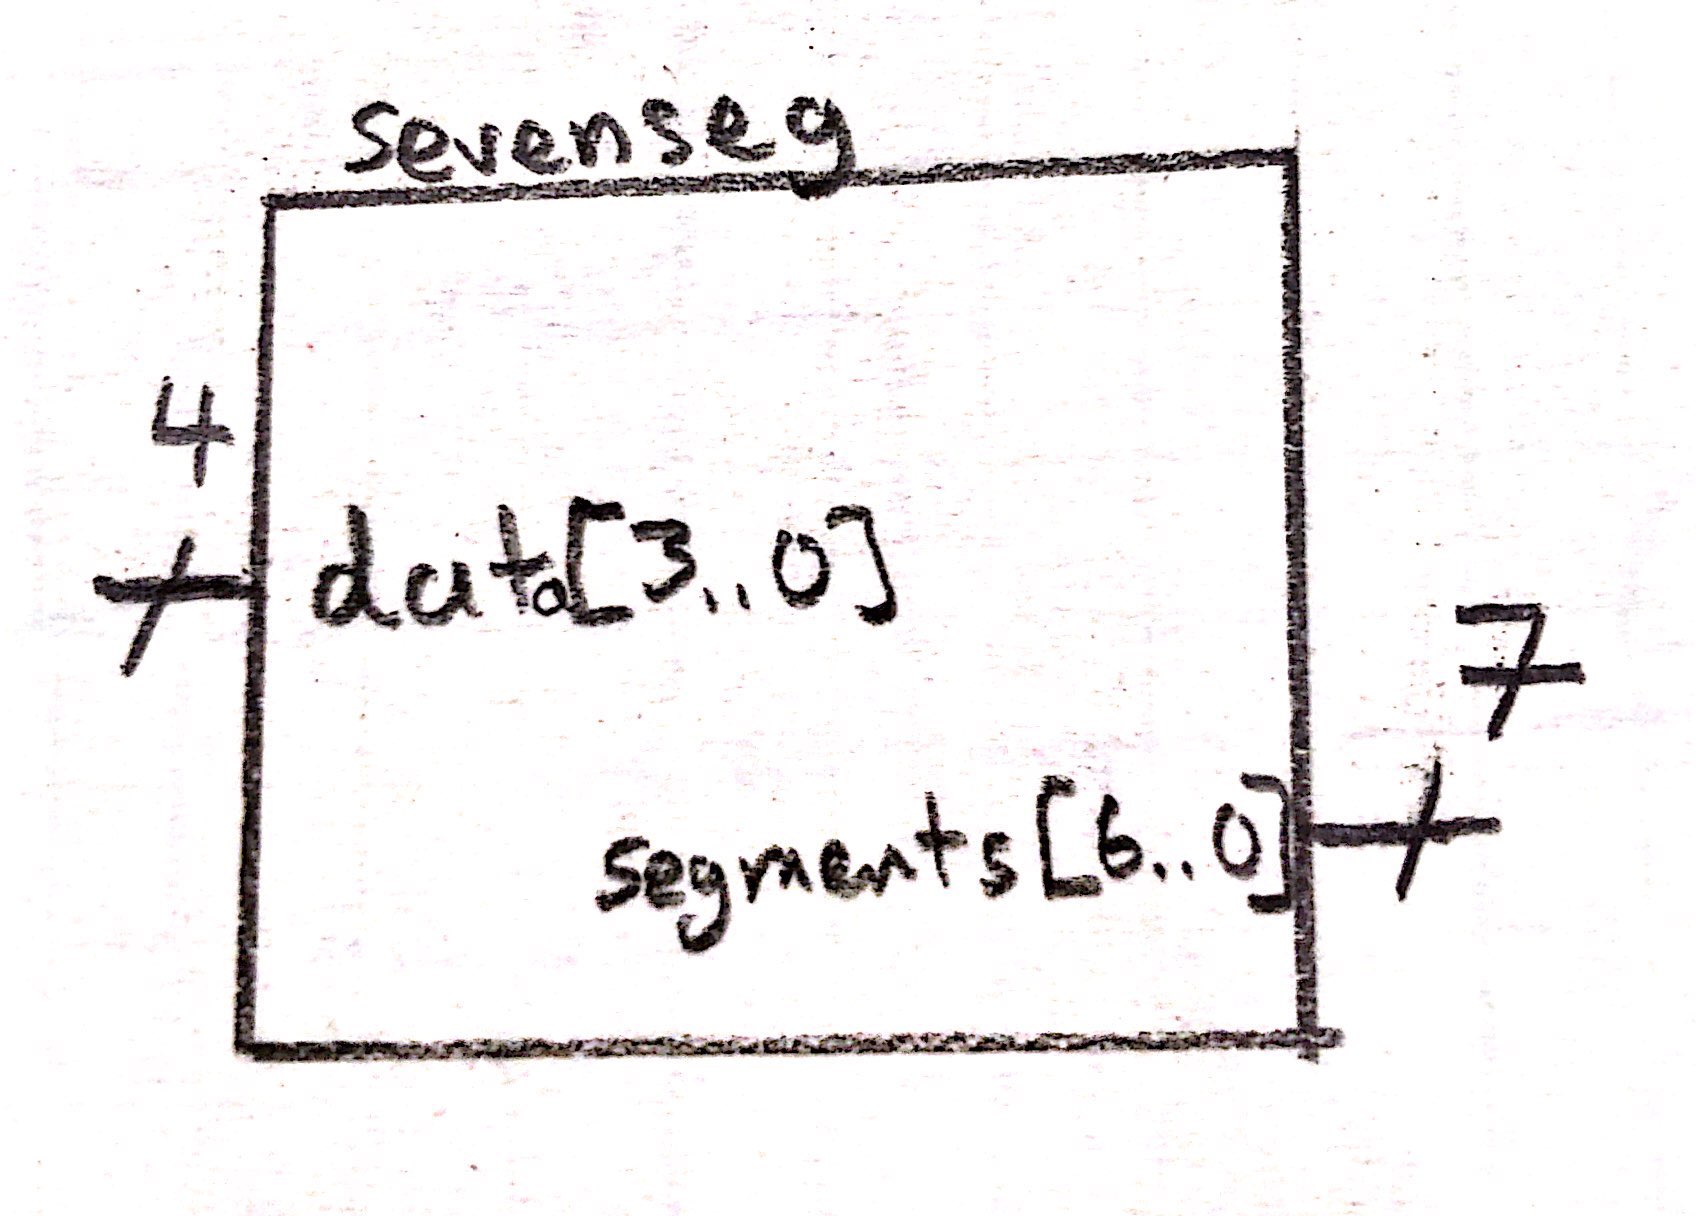 sevenseg
4
data[3..0]
7
segments[6..0]